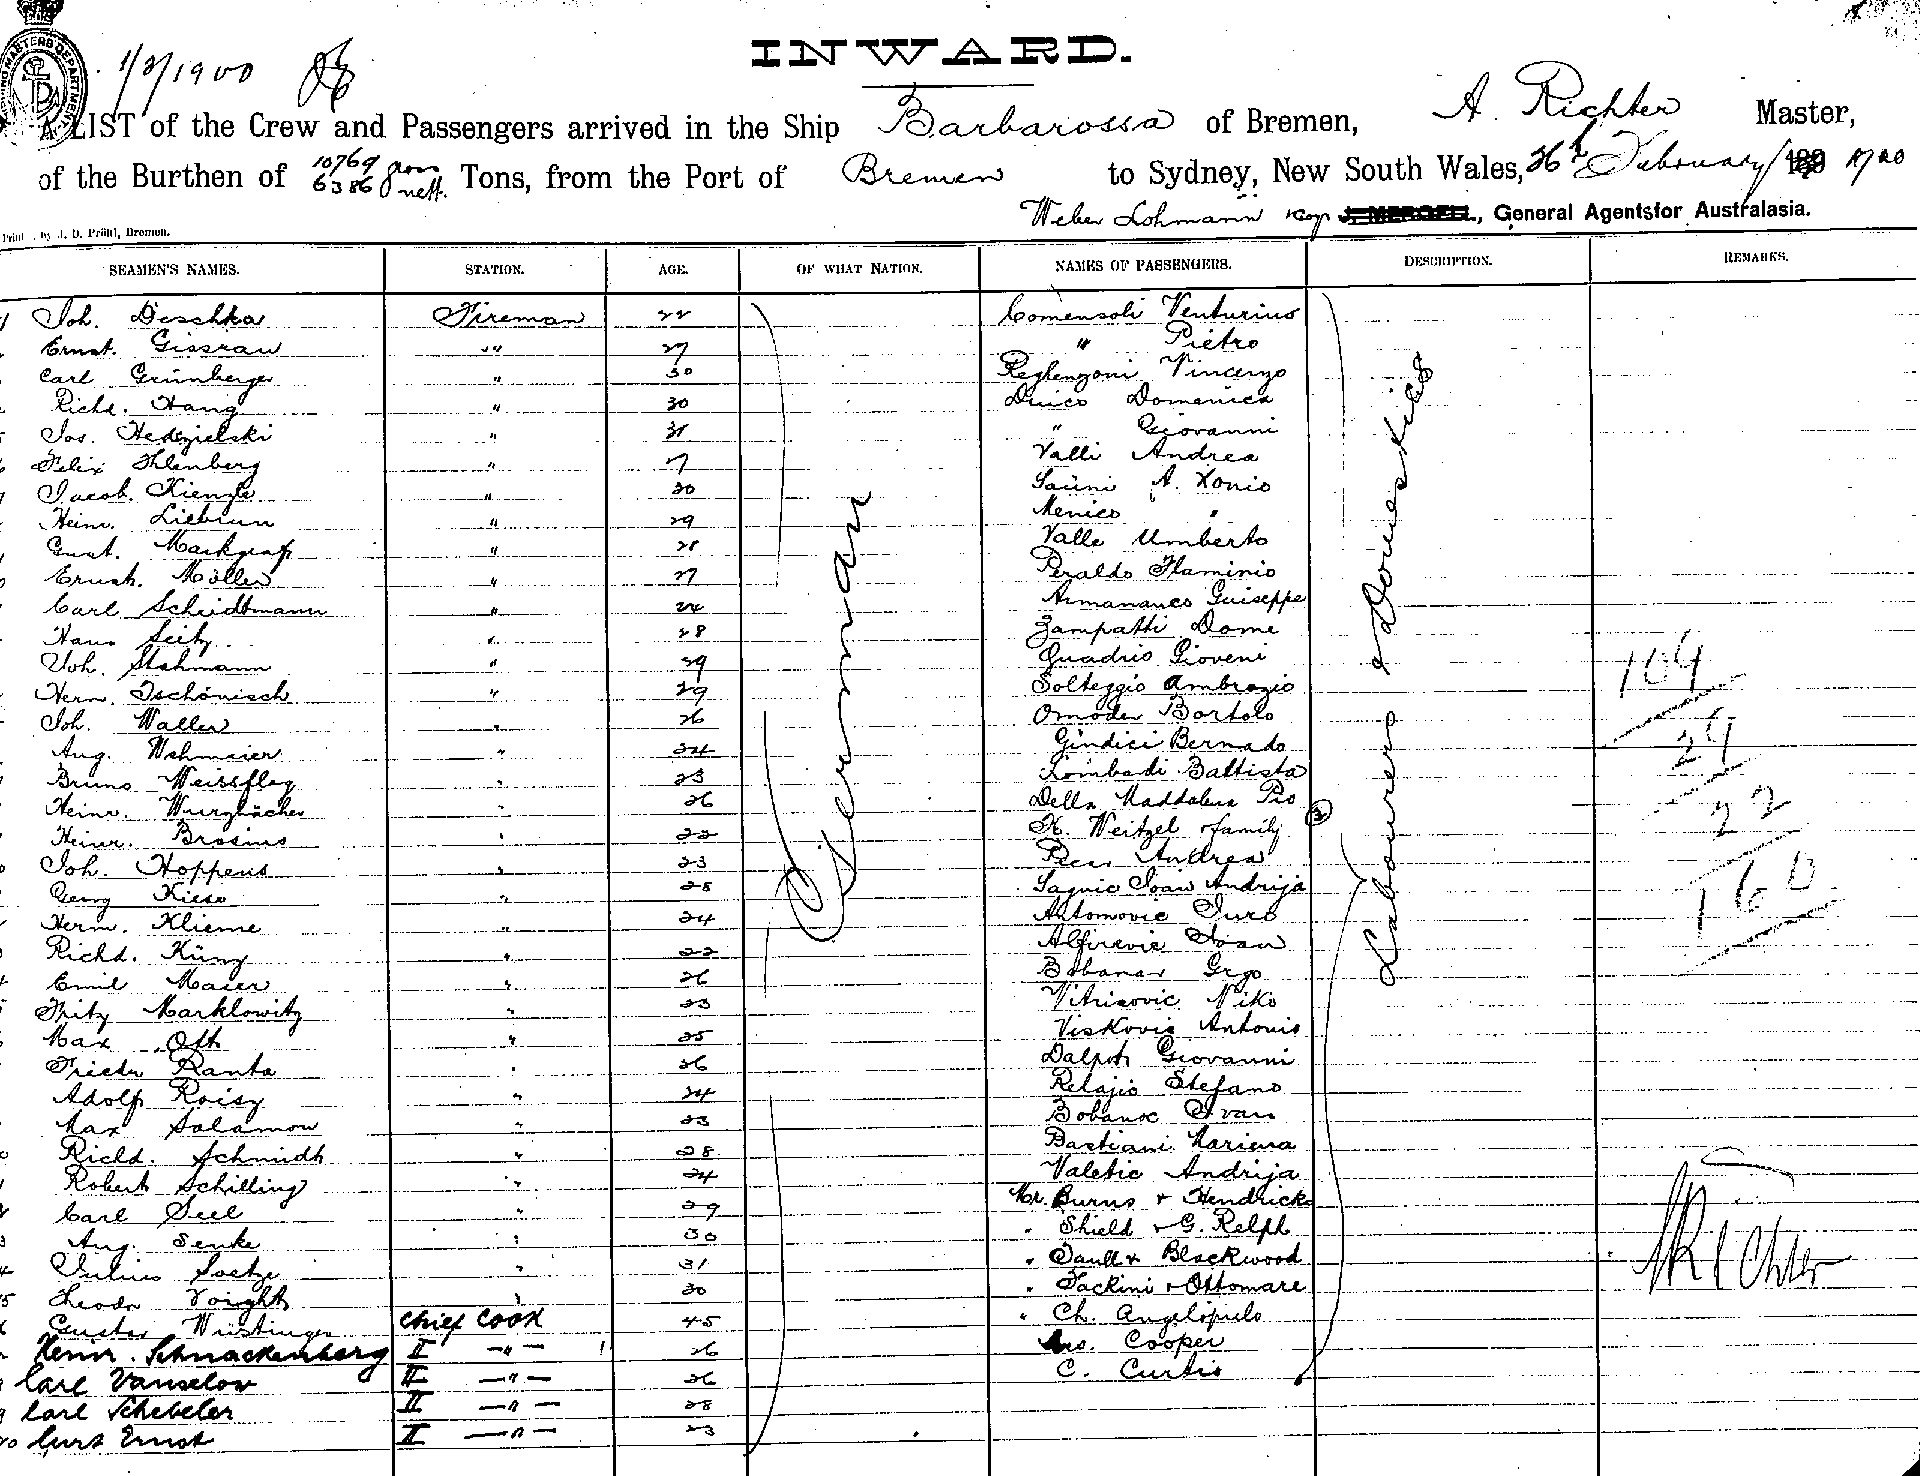 1/3/1900
INWARD.
A LIST of the Crew and Passengers arrived in the Ship Barbarossa of Bremen, A. Richter Master,
of the Burthen of 10769 gross 6386 nett. Tons, from the Port of Bremen to Sydney, New South Wales, 26th February / 189 1900
Weber Lohmann & Coy J. MERGELL, General Agents for Australasia.
Print by J. D. Prühl, Bremen.
SEAMEN'S NAMES. STATION. AGE. OF WHAT NATION. NAMES OF PASSENGERS. DESCRIPTION. REMARKS.
Joh. Deschka Fireman 22 Comensoli Venturino
Ernst. Gissrau " 27 " Pietro
Carl Grünberger " 30 Vincenzo
Richd. Haug " 30 Domenica
Jos. Hedzielski " 31 " Giovanni
Felix Ihlenberg " 27 Valli Andrea
Jacob. Kienzle " 30 A. Xonio
Heinr. Liebrun " 29 Menico "
Gust. Markgraf " 28 Valle Umberto
Ernst. Möller " 27 Peraldo Flaminio
Carl Scheidtmann " 24 Guiseppe
Hans Seitz " 28 Zampatti Dome
Joh. Stahmann " 29 Quadrio Gioveni
Herm. Tschönisch " 29 Solteggio Ambrogio
Joh. Waller " 26 Omodei Bortolo
Aug. Wehmeier " 24 Gindici Bernado
Bruno Weissflog " 23 Lombadi Battista
Heinr. Wurzbächer " 26 Della Maddalena Pio
Heinr. Brosius " 22 K. Weitzel & family (3)
Joh. Hoppens " 23 Andrea
Georg Kiese " 28 Ivan Andrija
Herm. Klieme " 24 Antomovic Juro
Richd. Küng " 22 Alfirevic Ivan
Emil Maier " 26 Bobanac Grgo
Fritz Marklowitz " 23 Niko
Max Ott " 25 Viskovic Antonio
Friedr Ranta " 26 Giovanni
Adolf Roisy " 24 Relajio Stefano
Max Salamon " 23 Bobanac Ivan
Richd. Schmidt " 28 Bastiani
Robert Schilling " 24 Valetic Andrija
Carl Seel " 29 Mr. Burns & Hendricks
Aug. Senke " 30 " Shield & G. Relph
Julius Soetze " 31 " & Blackwood
Theodr Voight " 30 " Tackini & Ottomare
Gustav Wüstinger Chief Cook 45 " Ch. Angelopulo
Heinr. Schnackenberg II —"— 26 Cooper
Carl Vanselow II —"— 26 C. Curtis
Carl Schebeler II —"— 28
Curt Ernst II —"— 23
German
Labourers & Domestics
104
24
22
160
A Richter